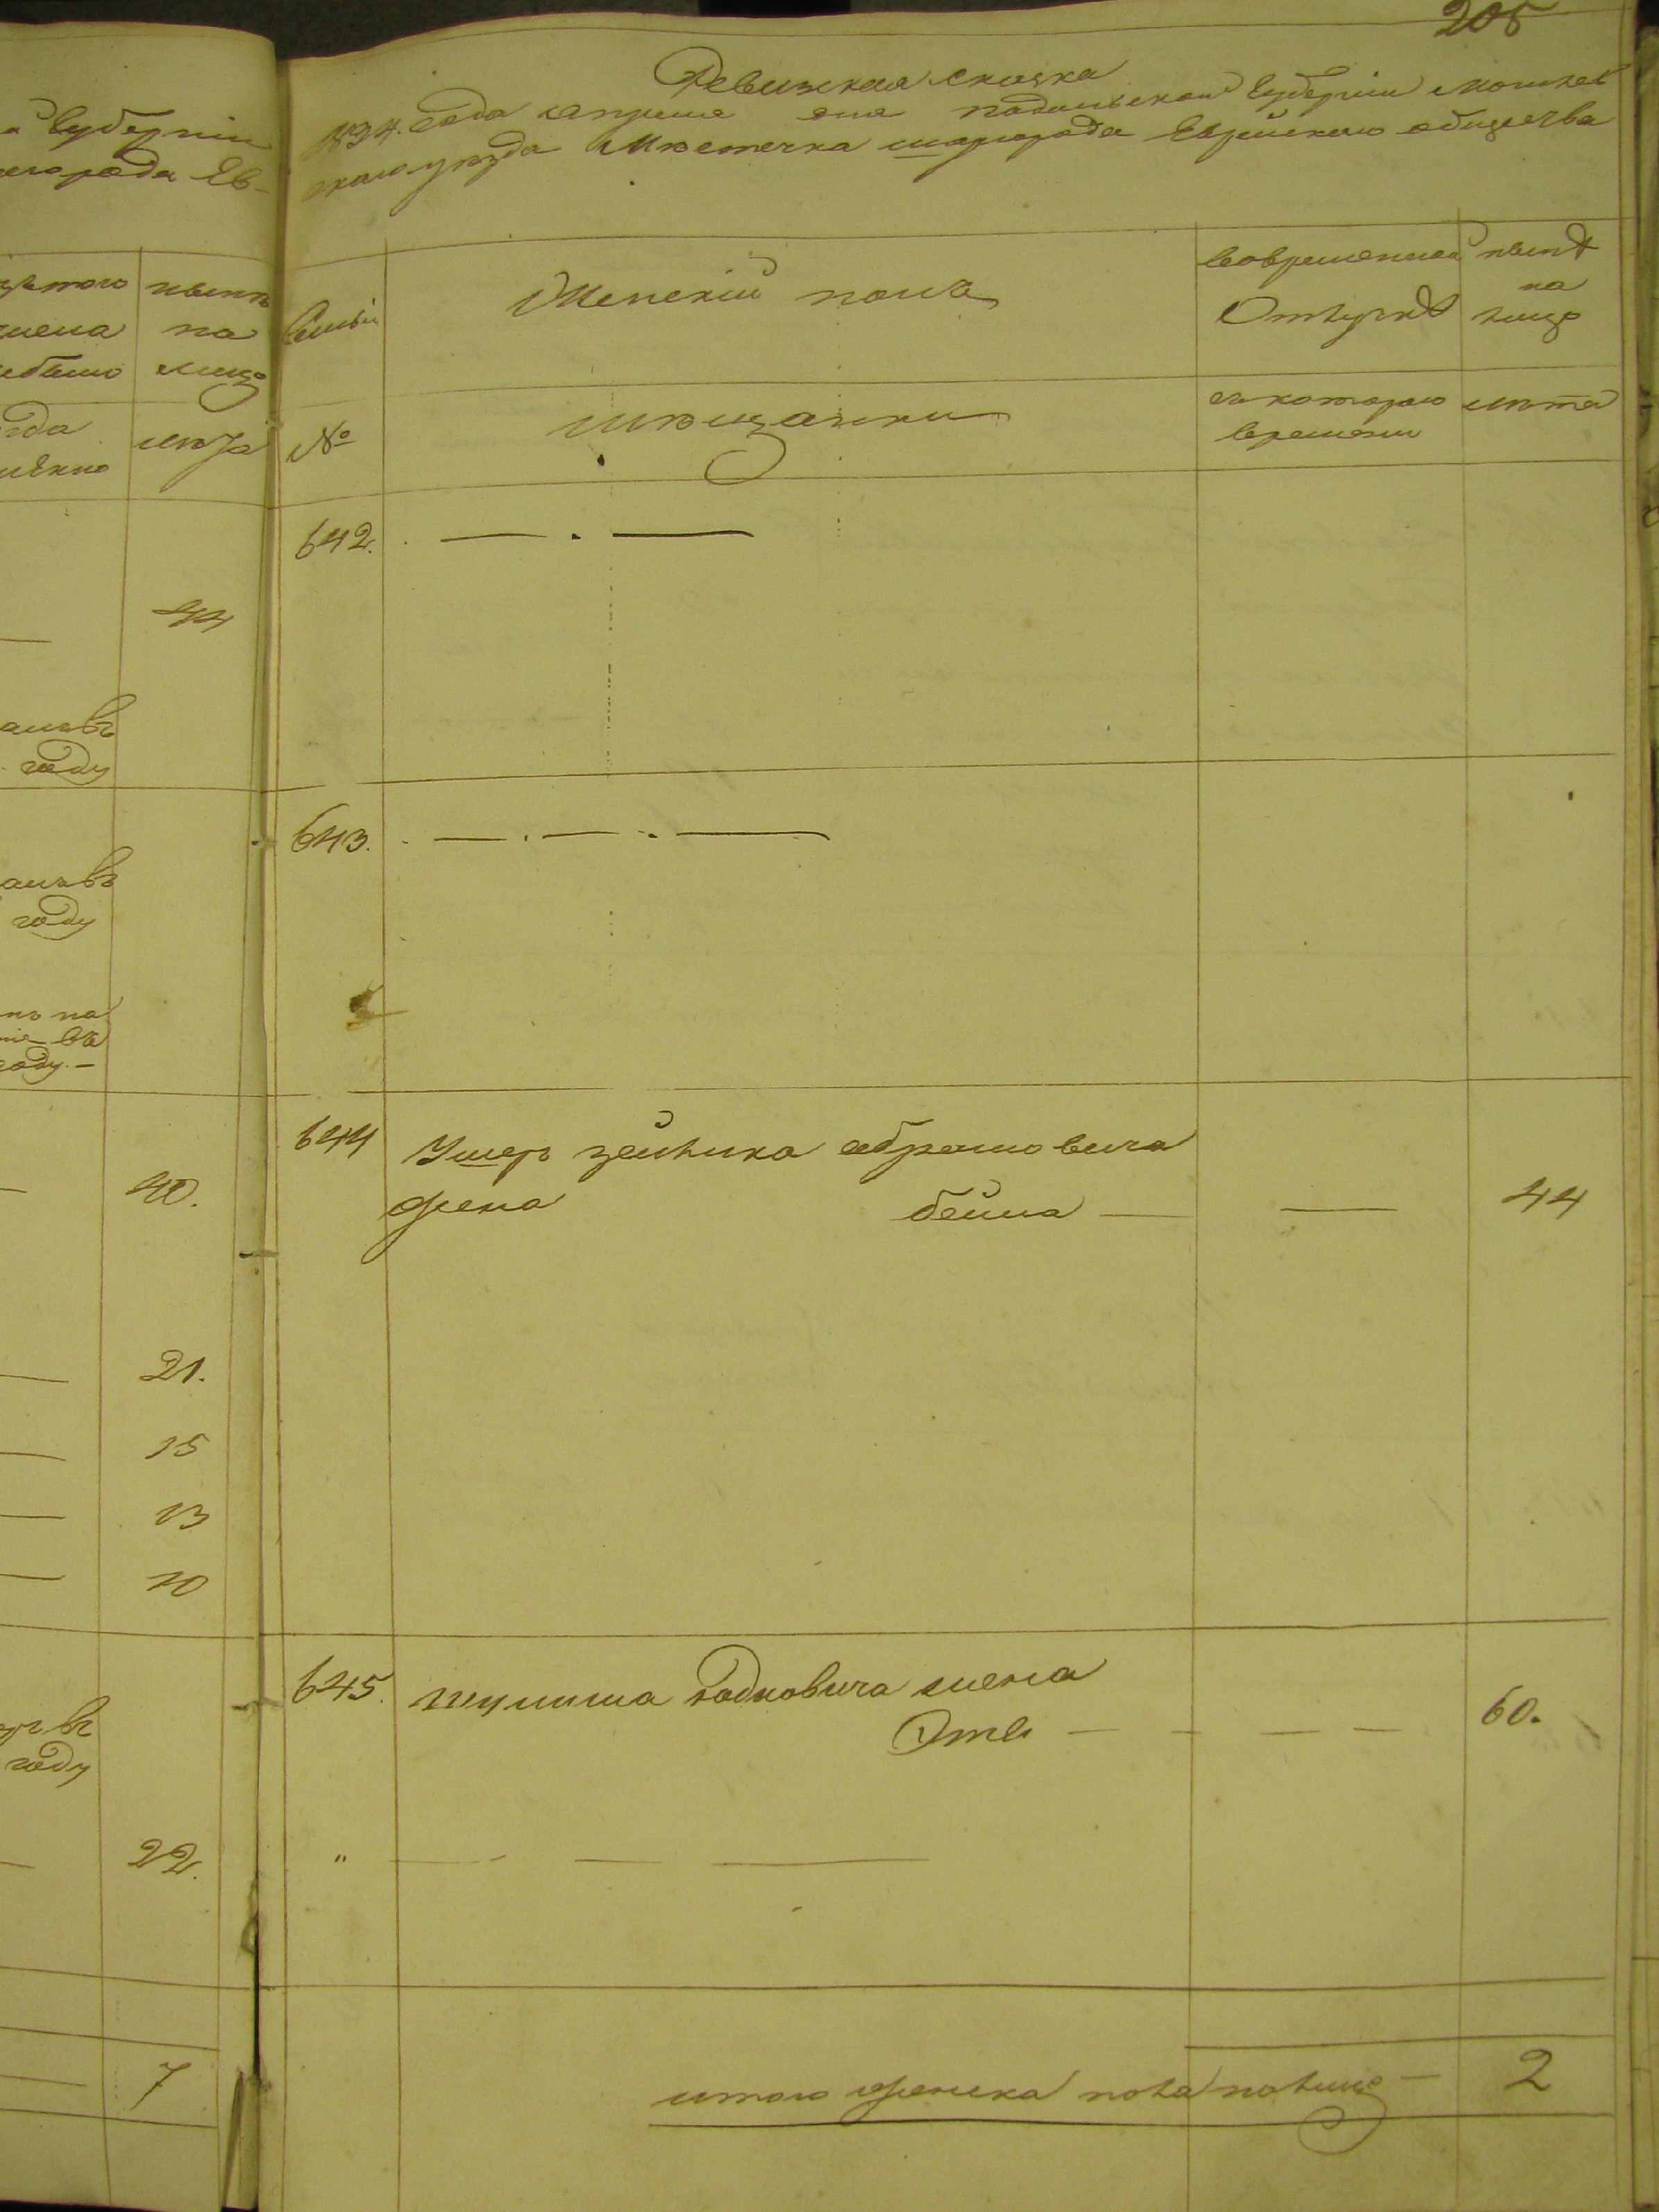 205
Ревизская сказка
1834. года апреля дня Подольской Губернии Могилев
скаго уезда Местечка Шаргорода Еврейского общества
Семьи
Женский полъ
Вовременной
Отлучке
ныне
на
лицо
№
мещанки
съ котораго
времени
лета
642.
643.
644 Ушеръ Зейлика Абрамовича
жена бейла — — 44
645. жена
Этля — — — — 60.
"
итого женска пола налице — 2
Губернии
города Ев-
ныне
на
лицо
лета
44
году
году
на
въ
году. —
40.
21.
15
13
10
въ
году
22.
7